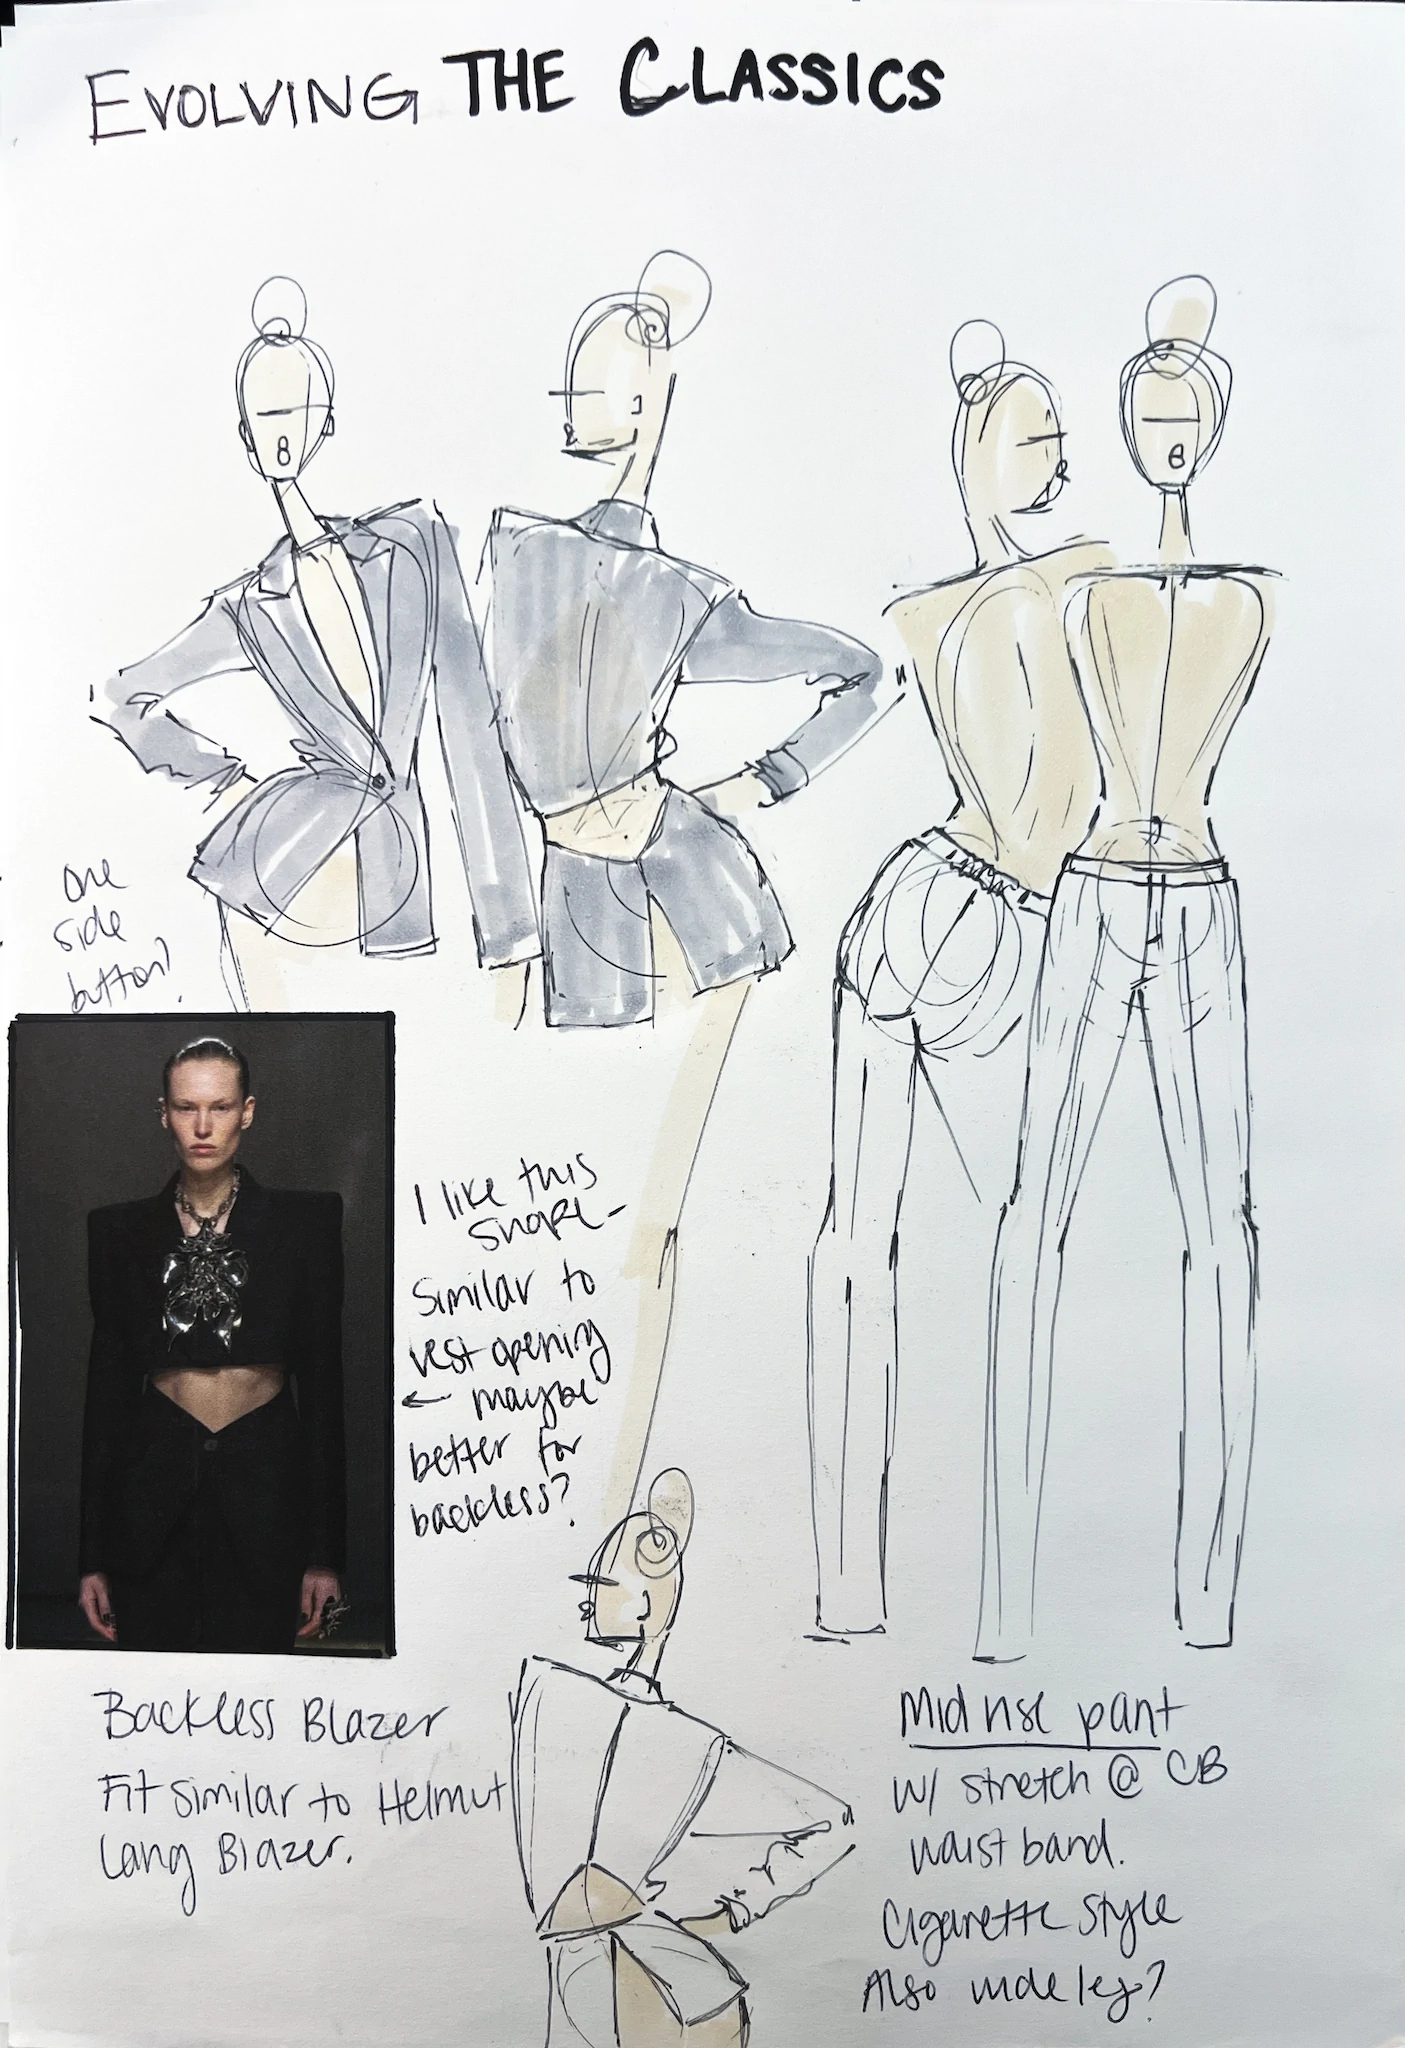 EVOLVING THE CLASSICS
One
side
button?
I like this
shape-
Similar to
vest opening
← maybe
better for
backless?
Backless Blazer
Fit similar to Helmut
Lang Blazer.
Mid rise pant
w/ stretch @ CB
waist band.
Cigarette style
Also wide leg?